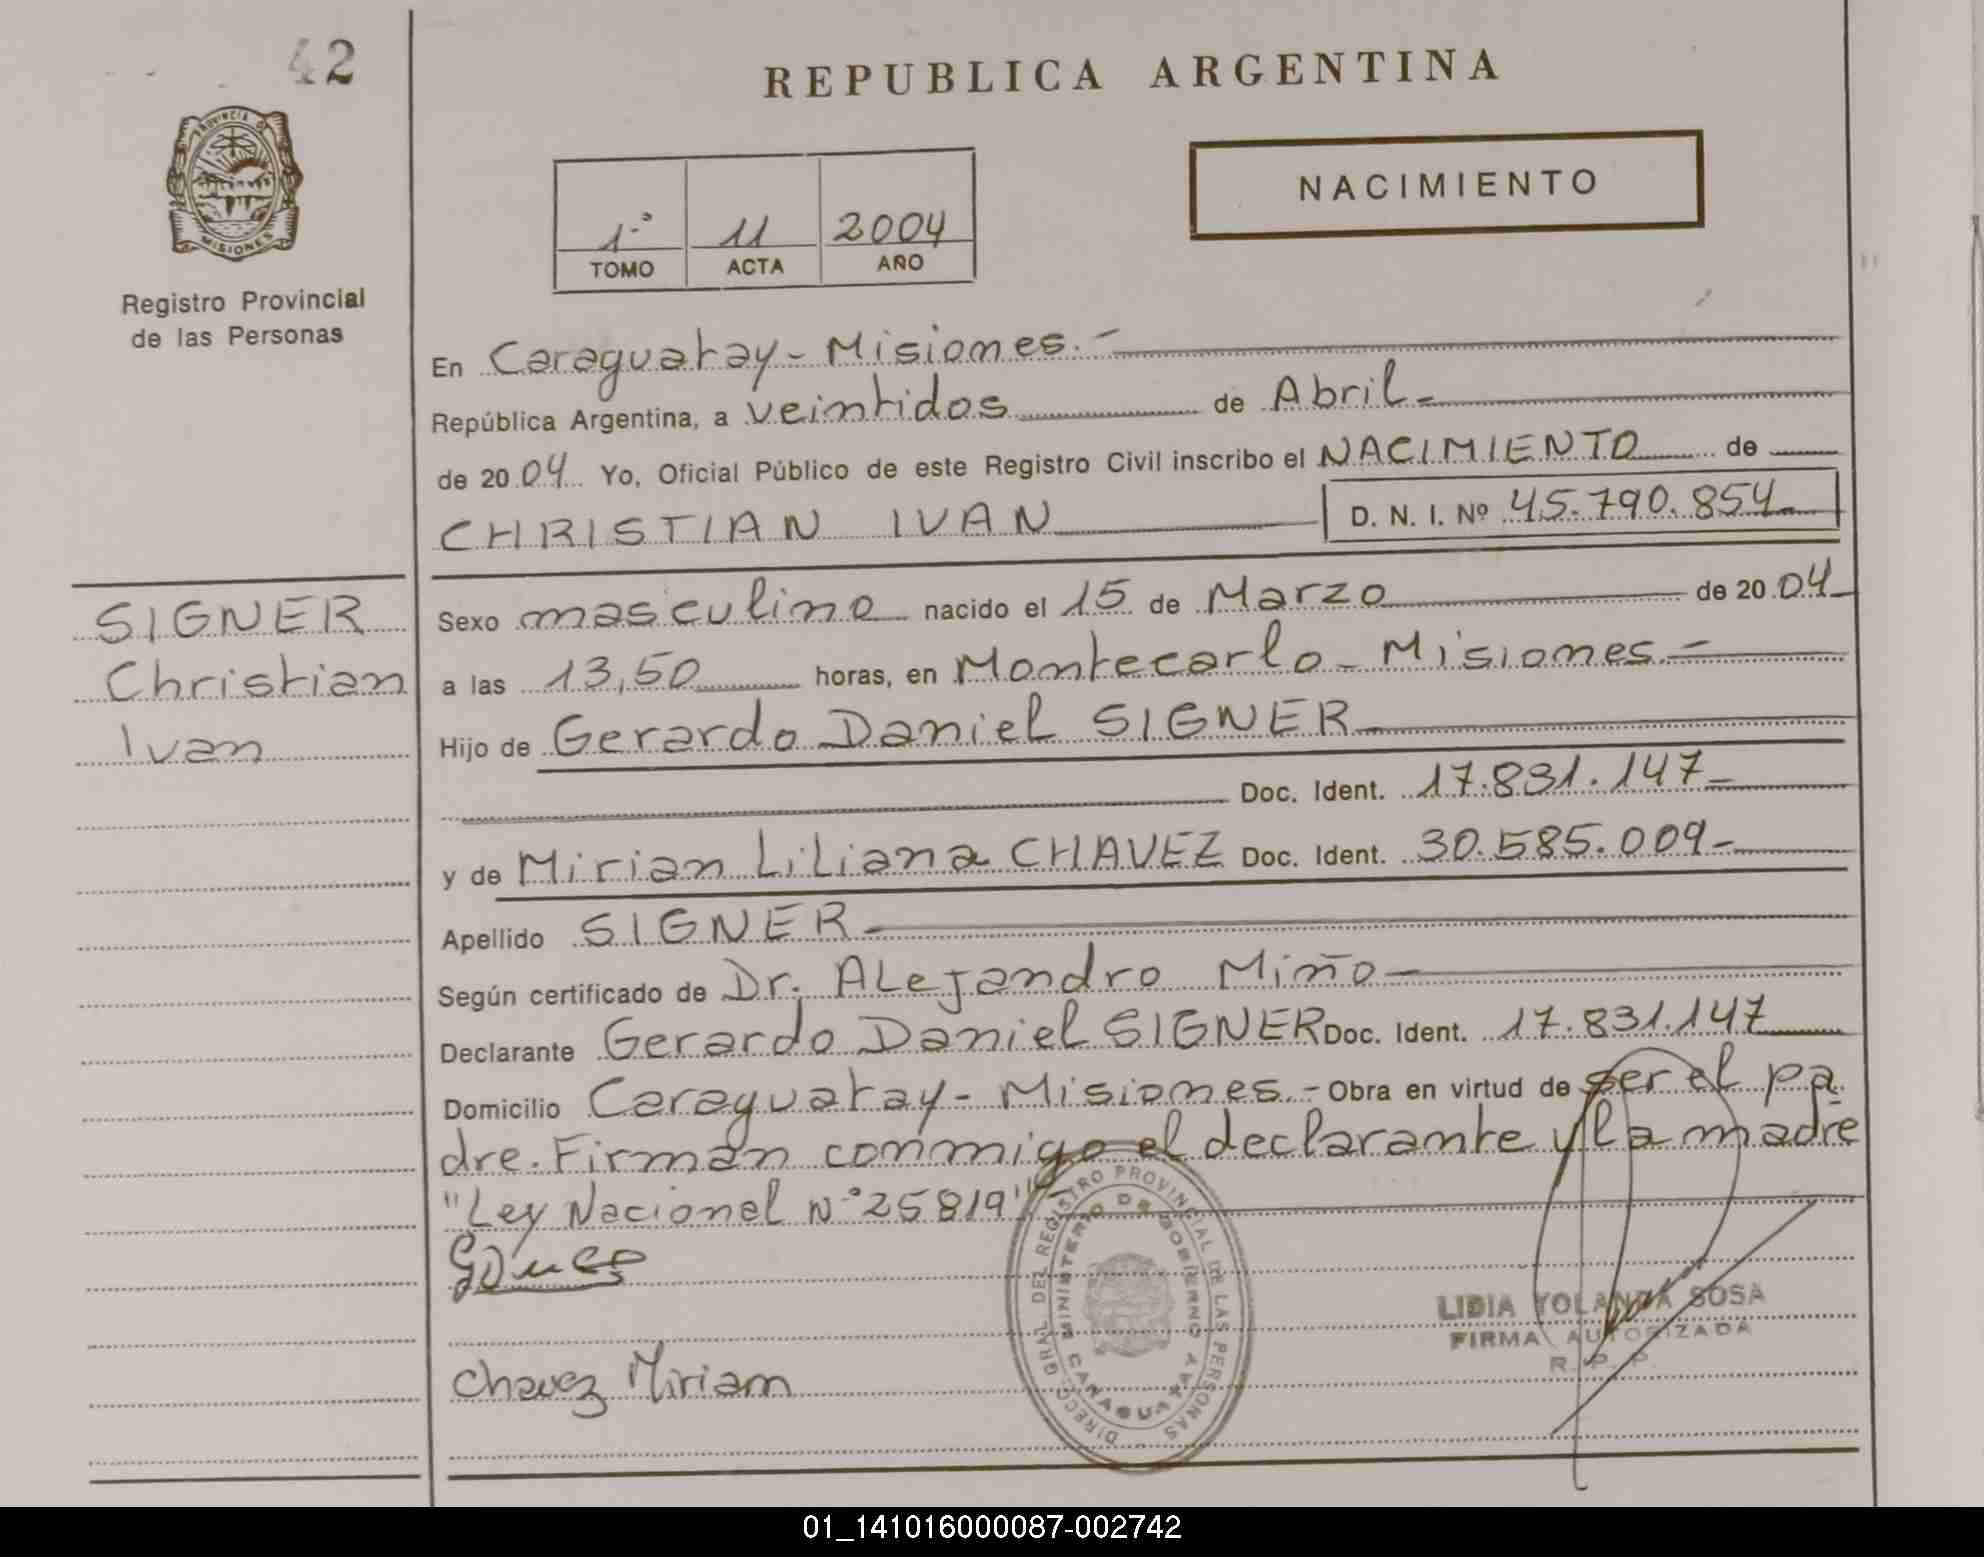 42
REPUBLICA ARGENTINA
PROVINCIA D
MISIONES
Registro Provincial
de las Personas
1.º 11 2004
TOMO ACTA AÑO
NACIMIENTO
En Caraguatay - Misiones.-
República Argentina, a veintidos de Abril-
de 2004 Yo, Oficial Público de este Registro Civil inscribo el NACIMIENTO de
CHRISTIAN IVAN D. N. I. Nº 45.790.854-
SIGNER
Christian
Ivan
Sexo masculino nacido el 15 de Marzo de 2004
a las 13,50 horas, en Montecarlo - Misiones.-
Hijo de Gerardo Daniel SIGNER
Doc. Ident. 17.831.147-
y de Mirian Liliana CHAVEZ Doc. Ident. 30.585.009-
Apellido SIGNER
Según certificado de Dr. Alejandro Miño-
Declarante Gerardo Daniel SIGNER Doc. Ident. 17.831.147
Domicilio Caraguatay - Misiones.- Obra en virtud de ser el pa
dre. Firman conmigo el declarante y la madre
"Ley Nacional Nº 25819"
Chavez Miriam
DIRECC. GRAL. DEL REGISTRO PROVINCIAL DE LAS PERSONAS
MINISTERIO DE GOBIERNO
CARAGUATAY
LIDIA YOLANDA SOSA
FIRMA AUTORIZADA
R. P. P.
01_141016000087-002742